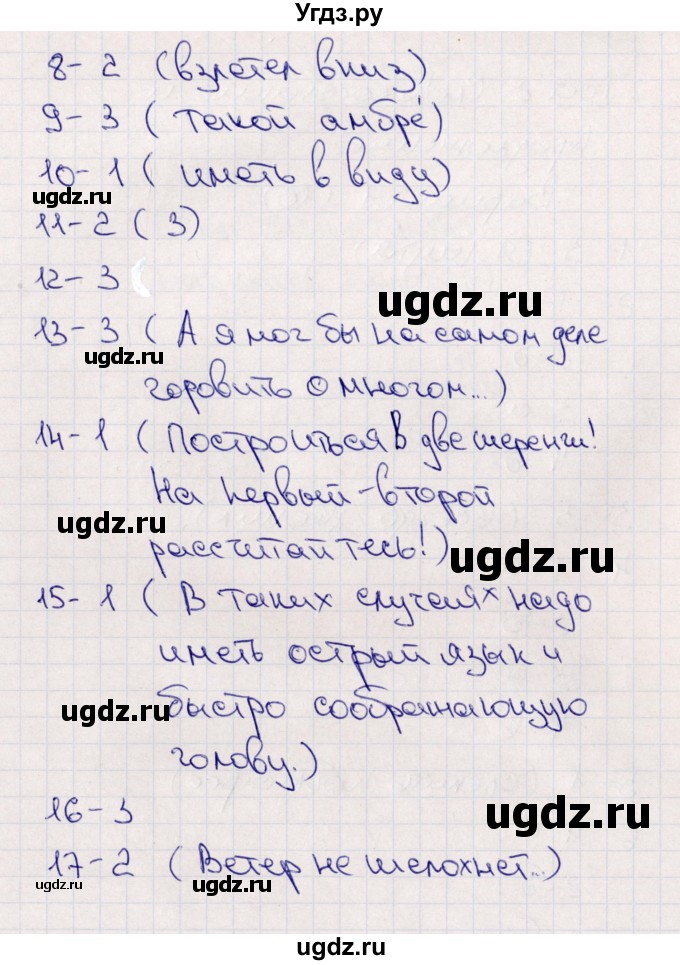 Угдз.ру
8- 2 (взлетел вниз)
9- 3 ( такой амбре́)
10- 1 ( иметь в виду)
ugdz.ru
11- 2 ( 3)
12- 3 (
ugdz.ru
13- 3 ( А я мог бы на самом деле
ugdz.ru
горовить о многом...)
14- 1 ( Построиться в две шеренги!
На первый-второй
ugdz.ru
рассчитайтесь!)
ugdz.ru
15- 1 ( В таких случаях надо
иметь острый язык и
ugdz.ru
быстро соображающую
голову.)
16- 3
ugdz.ru
17- 2 ( Ветер не шелохнет...)
ugdz.ru
ugdz.ru
ugdz.ru
ugdz.ru